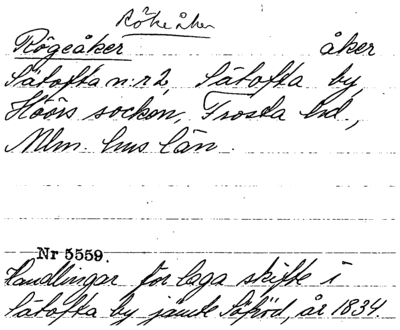 Rökeåker
Rögeåker åker
Sätofta n:r 2, Sätofta by,
Höörs socken, Frosta hd.,
Mlm. hus län.
Nr 5559.
Handlingar för laga skifte i
Sätofta by jämte Sjöröd, år 1834.